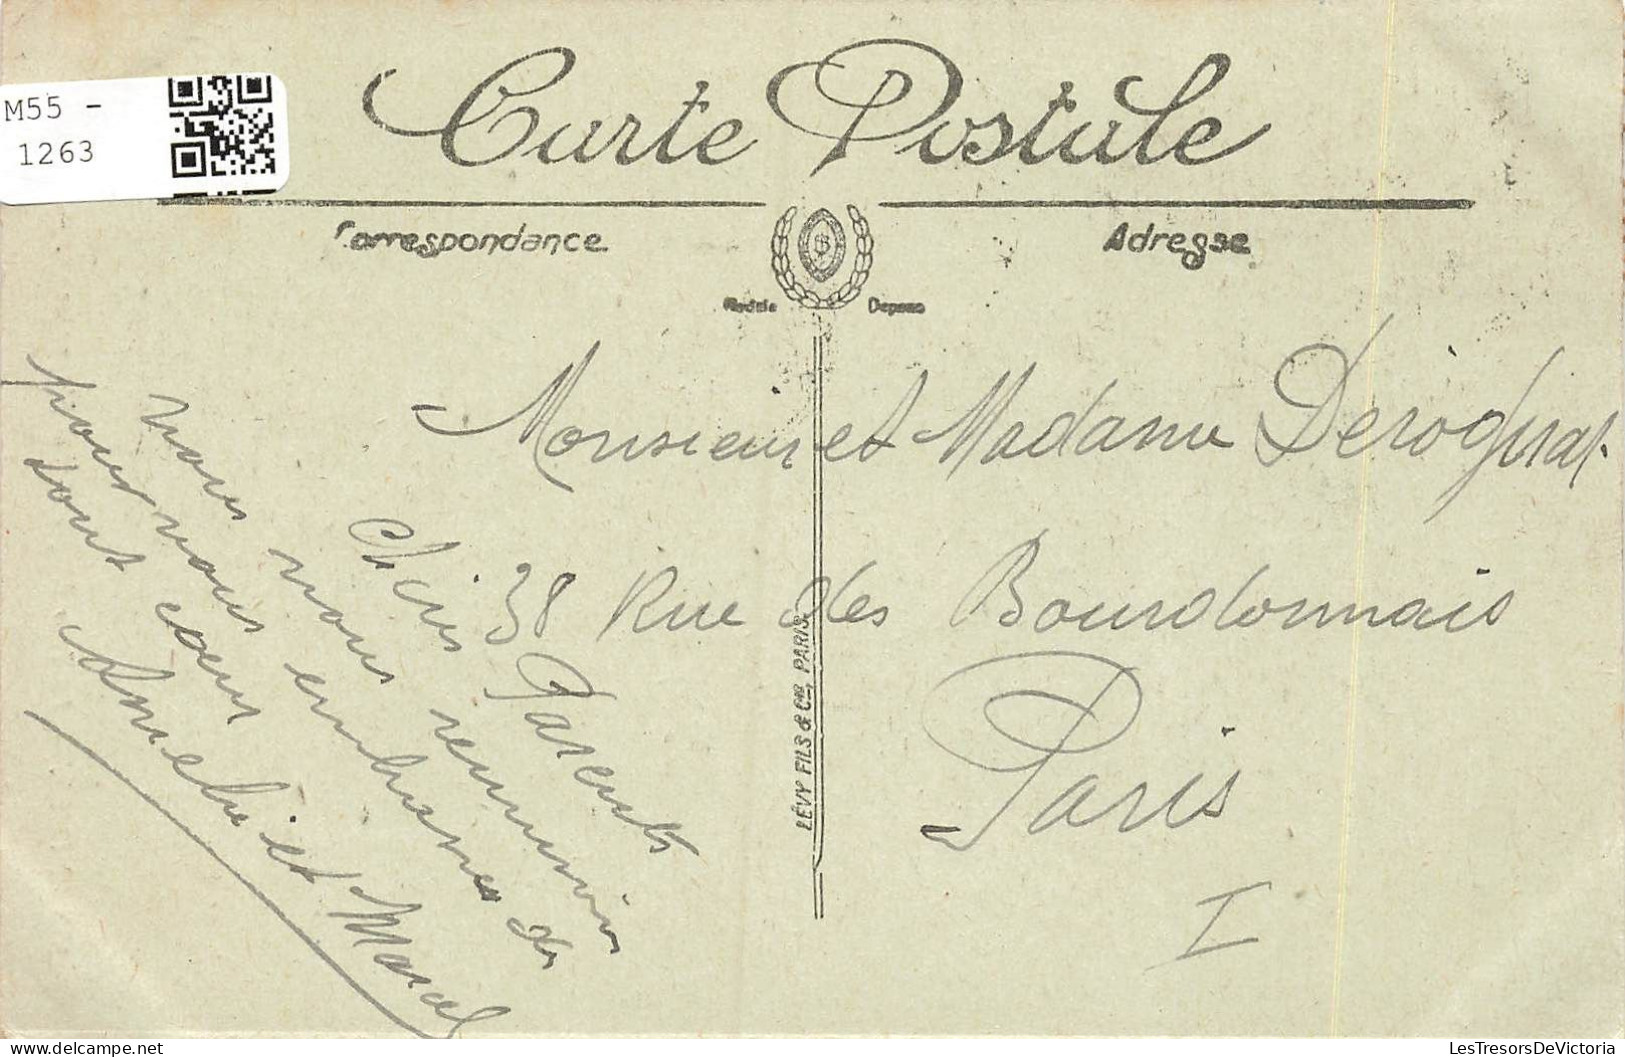 M55 -
1263
Carte Postale
Correspondance
Adresse
Modèle Déposé
Chers Parents
nous nous reunirions
pour vous embrasser de
tout cœur
Amelie et Marcel
Monsieur et Madame Derognat
38 Rue des Bourdonnais
Paris
I
LÉVY FILS & Cie, PARIS.
LesTresorsDeVictoria